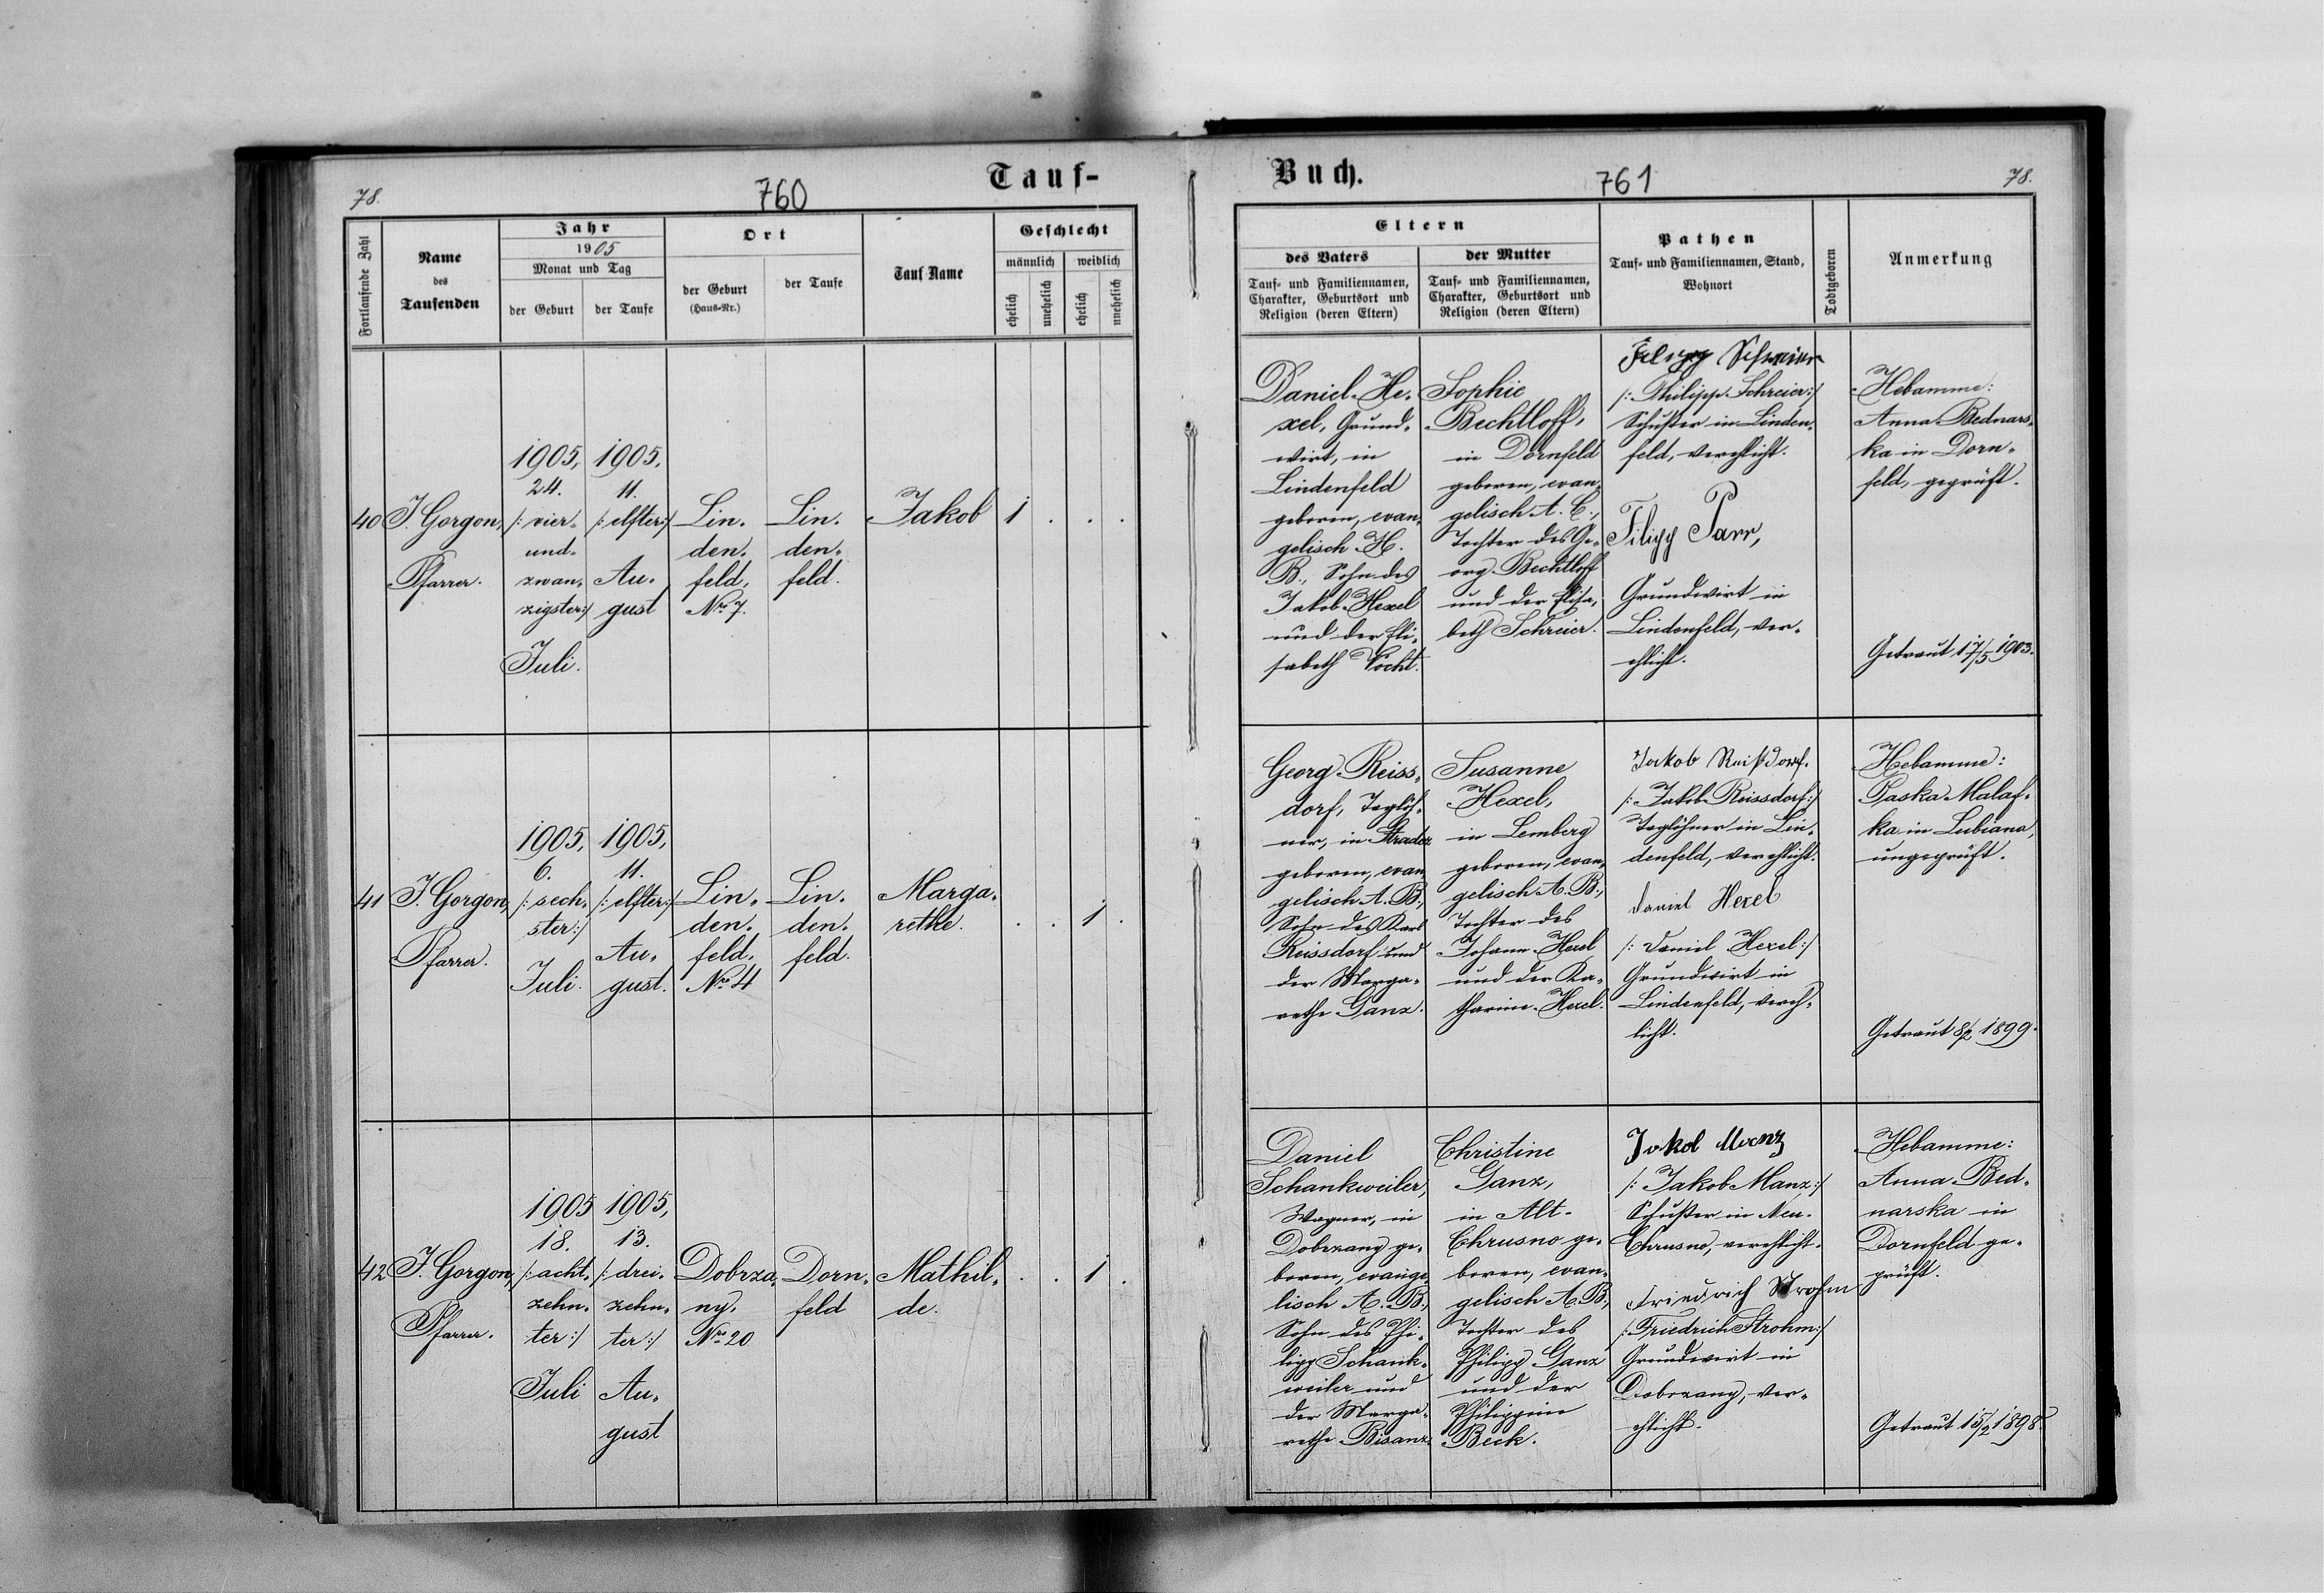 78.
760
Tauf-
Fortlaufende Zahl
Name
des
Taufenden
Jahr
1905
Monat und Tag
der Geburt
der Taufe
Ort
der Geburt
(Haus-Nr.)
der Taufe
Tauf-Name
Geschlecht
männlich
weiblich
ehelich
unehelich
ehelich
unehelich
40
J. Gorgon,
Pfarrer.
1905,
24.
/: vier-
und-
zwan-
zigster:/
Juli.
1905,
11.
/: elfter:/
Au-
gust
Lin-
den-
feld,
No 7.
Lin-
den-
feld.
Jakob
1 . . .
41
J. Gorgon,
Pfarrer.
1905,
6.
/: sech-
ster:/
Juli.
1905,
11.
/: elfter:/
Au-
gust.
Lin-
den-
feld.
No 4
Lin-
den-
feld.
Marga-
rethe.
. . 1 .
42
J. Gorgon,
Pfarrer.
1905
18.
/: acht-
zehn-
ter:/
Juli
1905,
13.
/: drei-
zehn-
ter:/
Au-
gust
Dobrza-
ny,
No 20
Dorn-
feld
Mathil-
de.
. . 1 .
Buch.
761
78.
Eltern
des Vaters
Tauf- und Familiennamen,
Charakter, Geburtsort und
Religion (deren Eltern)
der Mutter
Tauf- und Familiennamen,
Charakter, Geburtsort und
Religion (deren Eltern)
Pathen
Tauf- und Familiennamen, Stand,
Wohnort
Todtgeboren
Anmerkung
Daniel He-
xel, Grund-
wirt, in
Lindenfeld
geboren, evan-
gelisch H.
B., Sohn des
Jakob Hexel
und der Eli-
sabeth Pocht.
Sophie
Bechtloff,
in Dornfeld
geboren, evan-
gelisch A. C.,
Tochter des Ge-
org Bechtloff
und der Elisa-
beth Schreier.
/: Philipp Schreier:/
Schuster in Linden-
feld, verehlicht.
Filipp Parr,
Grundwirt in
Lindenfeld, ver-
ehlicht.
Hebamme:
Anna Bednars-
ka in Dorn-
feld, geprüft.
Getraut 17/5 1903.
Georg Reiss-
dorf, Taglöh-
ner, in Stradcz
geboren, evan-
gelisch A. B.,
Sohn des Karl
Reissdorf und
der Marga-
rethe Ganz.
Susanne
Hexel,
in Lemberg
geboren, evan-
gelisch A. B.,
Tochter des
Johann Hexel
und der Ka-
tharine Hexel.
Jakob Reißdorf.
/: Jakob Reissdorf:/
Taglöhner in Lin-
denfeld, verehlicht.
Daniel Hexel
/: Daniel Hexel:/
Grundwirt in
Lindenfeld, vereh-
licht.
Hebamme:
Paska Malaf-
ka in Lubiana,
ungeprüft.
Getraut 8/2 1899.
Daniel
Schankweiler,
Wagner, in
Dobrzany ge-
boren, evange-
lisch A. B.,
Sohn des Phi-
lipp Schank-
weiler und
der Marga-
rethe Bisanz.
Christine
Ganz,
in Alt-
Chrusno ge-
boren, evan-
gelisch A. B.,
Tochter des
Philipp Ganz
und der
Philippine
Beck.
Jakob Manz
/: Jakob Manz:/
Schuster in Neu-
Chrusno, verehlicht.
Friedrich Strohm
/: Friedrich Strohm:/
Grundwirt in
Dobrzany, ver-
ehlicht.
Hebamme:
Anna Bed-
narska in
Dornfeld ge-
prüft.
Getraut 15/2 1898.